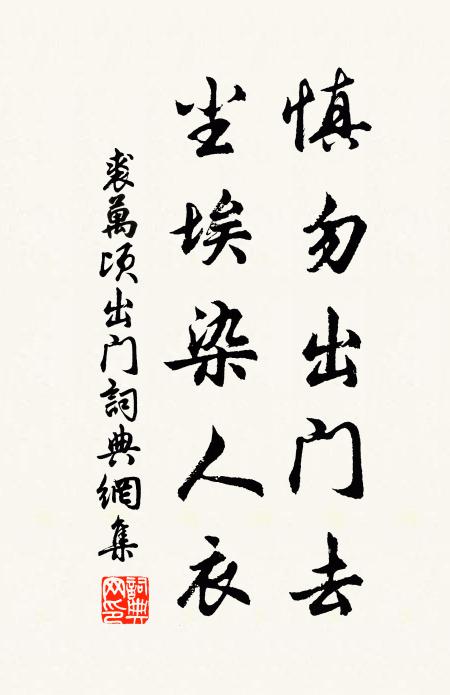 慎勿出门去
尘埃染人衣
裘萬頃出门詞典網集
詞典网印